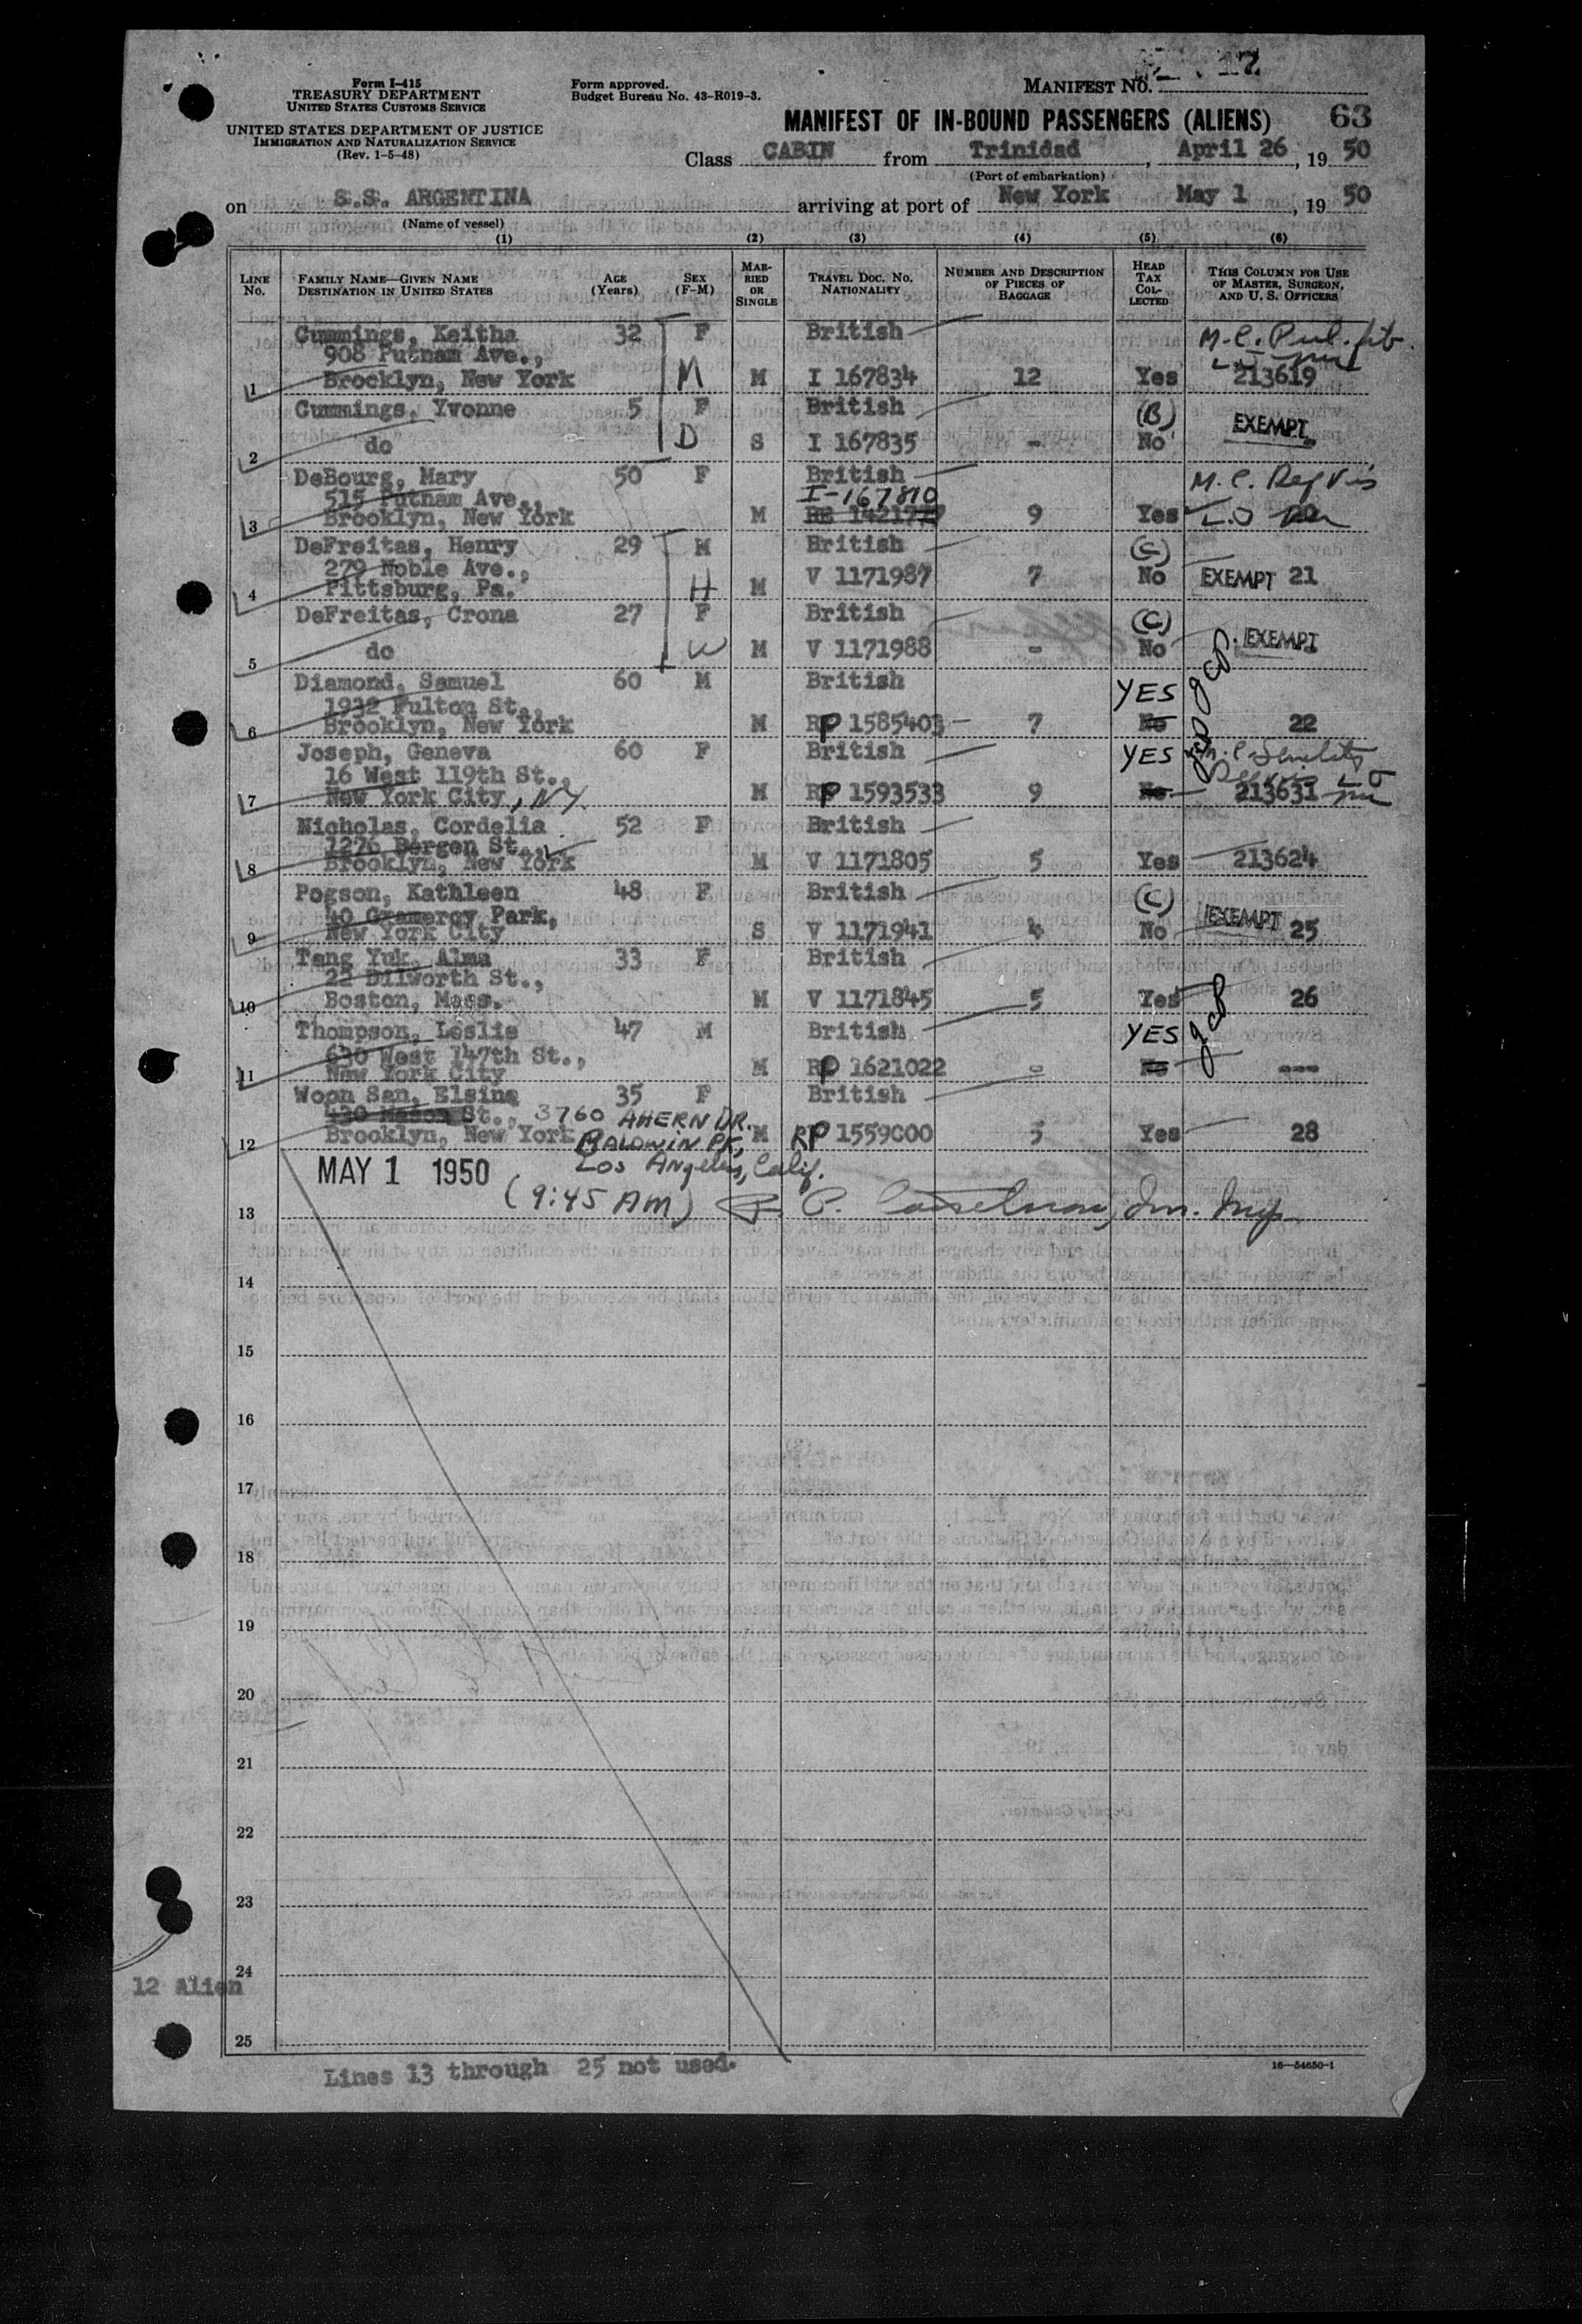 Form I-415
TREASURY DEPARTMENT
UNITED STATES CUSTOMS SERVICE
UNITED STATES DEPARTMENT OF JUSTICE
IMMIGRATION AND NATURALIZATION SERVICE
(Rev. 1-5-48)
Form approved.
Budget Bureau No. 43-R019-3.
MANIFEST NO.
MANIFEST OF IN-BOUND PASSENGERS (ALIENS) 63
Class CABIN from Trinidad, April 26, 19 50
(Port of embarkation)
on S.S. ARGENTINA arriving at port of New York May 1, 19 50
(Name of vessel)
(1) (2) (3) (4) (5) (6)
LINE NO. FAMILY NAME—GIVEN NAME DESTINATION IN UNITED STATES AGE (Years) SEX (F-M) MARRIED OR SINGLE TRAVEL DOC. NO. NATIONALITY NUMBER AND DESCRIPTION OF PIECES OF BAGGAGE HEAD TAX COLLECTED THIS COLUMN FOR USE OF MASTER, SURGEON, AND U. S. OFFICERS
Cummings, Keitha 32 F British M.C.
908 Putnam Ave.,
1 Brooklyn, New York M M I 167834 12 Yes 213619
Cummings, Yvonne 5 F British (B) EXEMPT
2 do D S I 167835 - No
DeBourg, Mary 50 F British M.C.
515 Putnam Ave., I-167810
3 Brooklyn, New York M RE 1421777 9 Yes
DeFreitas, Henry 29 M British (C)
279 Noble Ave., V 1171987 7 No EXEMPT 21
4 Pittsburg, Pa. H M
DeFreitas, Crona 27 F British (C)
5 do W M V 1171988 - No EXEMPT
Diamond, Samuel 60 M British YES
1932 Fulton St.,
6 Brooklyn, New York M RP 1585403 7 No 22
Joseph, Geneva 60 F British YES
16 West 119th St.,
7 New York City, N.Y. M RP 1593533 9 No 213631
Nicholas, Cordelia 52 F British
1276 Bergen St.,
8 Brooklyn, New York M V 1171805 5 Yes 213624
Pogson, Kathleen 48 F British (C)
40 Gramercy Park, EXEMPT
9 New York City S V 1171941 4 No 25
Tang Yuk, Alma 33 F British
22 Dilworth St.,
10 Boston, Mass. M V 1171845 5 Yes 26
Thompson, Leslie 47 M British YES
630 West 147th St.,
11 New York City M RP 1621022 - No ---
Woon San, Elsing 35 F British
430 Macon St., 3760 AHERN DR.
12 Brooklyn, New York BALDWIN PK, M RP 1559000 5 Yes 28
MAY 1 1950 Los Angeles, Calif.
13 (9:45 AM)
14
15
16
17
18
19
20
21
22
23
24
12 Alien
25
Lines 13 through 25 not used.
16—54650-1